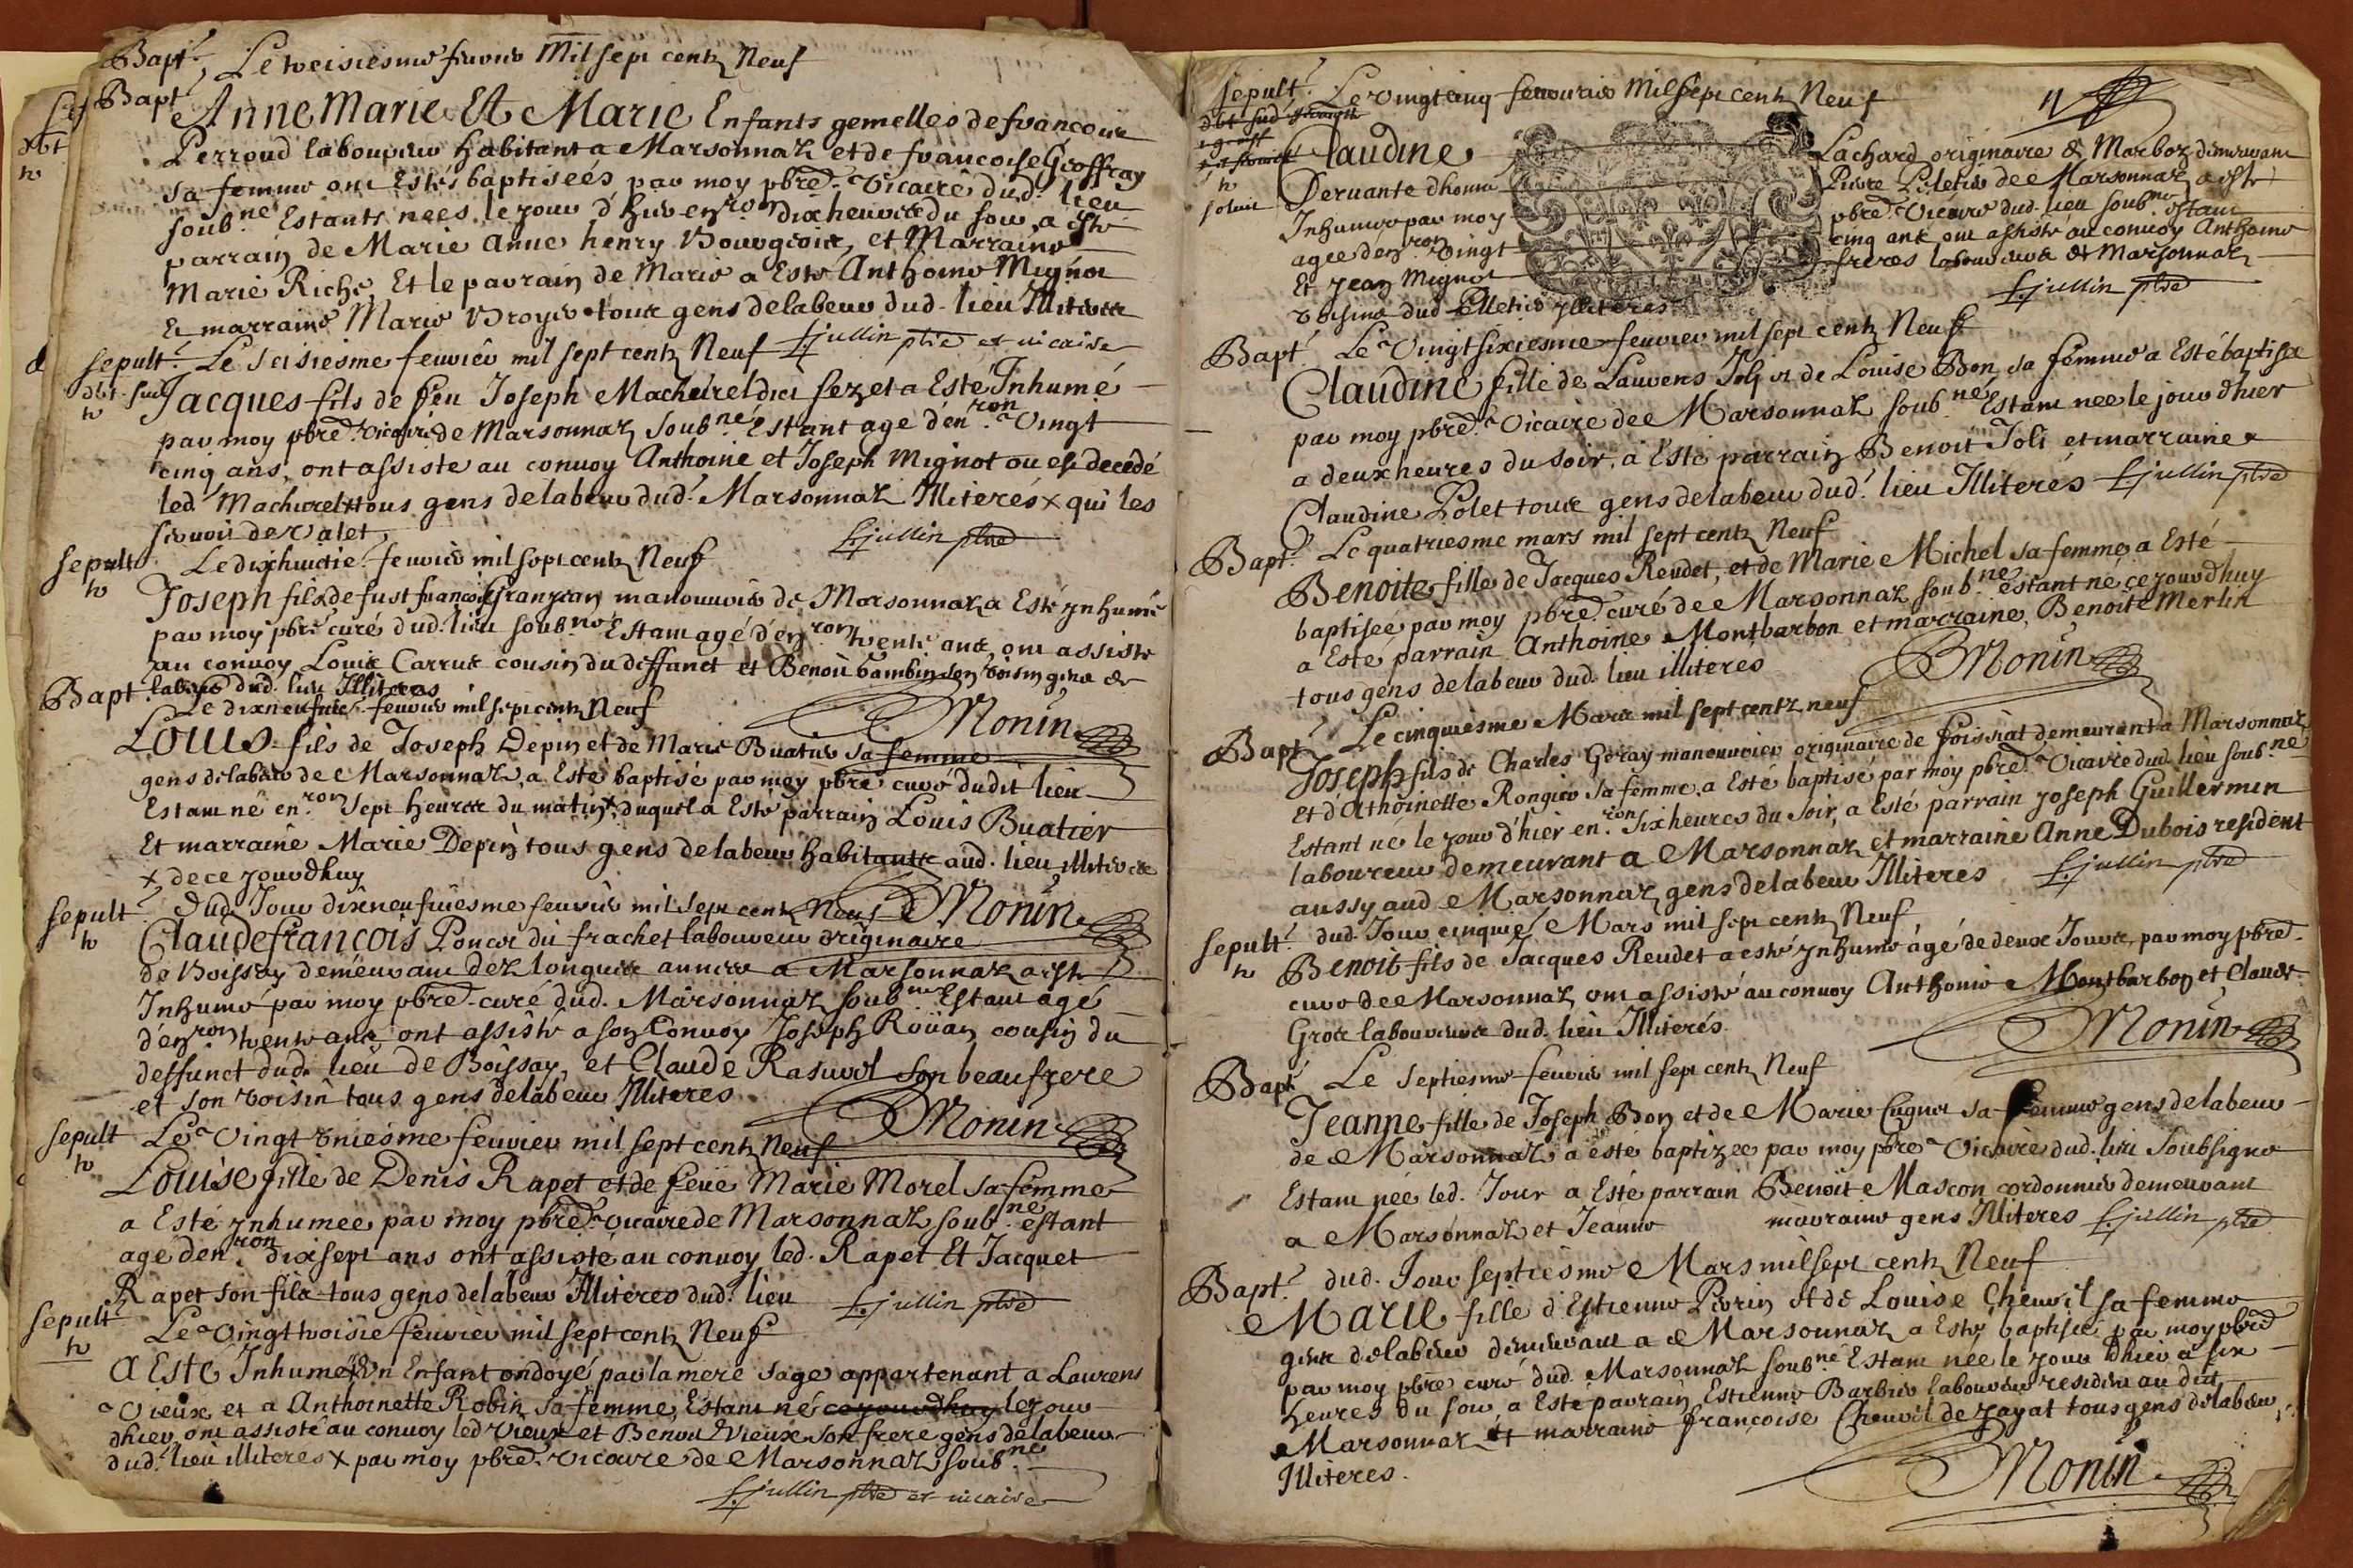 Bapt. Le treisiesme fevrier Mil sept centz Neuf
Bapt. Anne Marie Et Marie Enfants gemelles de francois
Perroud laboureur habitant a Marsonnaz et de francoise Geoffray
sa femme ont Estés baptiseés par moy pbre. Vicaire dud. lieu
soub.né Estants nees le jour d'hier en.ron dix heures du soir, a esté
parrain de Marie Anne henry Bourgeois, et Marraine
Marie Riche, Et le parrain de Marie a Esté Anthoine Mignot
Et marraine Marie Broyer tous gens de labeur dud. lieu Illiteres
f. jullin ptre et vicaire
sepult. Le seisiesme feuvier mil sept centz Neuf
Jacques fils de feu Joseph Machurel dit fezet a Esté Inhumé
par moy pbre. vicaire de Marsonnaz soub.né Estant agé d'en.ron Vingt
cinq ans, ont assisté au convoy Anthoine et Joseph Mignot ou est decedé
led. Machurel tous gens de labeur dud. Marsonnaz Illiterés x qui les
servoit de valet
f. jullin ptre
sepult. Le dixhuictie. feuvrier mil sept centz Neuf
Joseph fils de fust francois Granjean manouvrier de Marsonnaz a Esté ynhumé
par moy pbre curé dud. lieu soub.né Estant agé d'en.ron trente ans, ont assisté
au convoy Louis Carruz cousin du deffunct et Benoit bambin son voisin gens de
labeur dud. lieu Illiteres
Monin
Bapt. Le dixneufvie. feuvrier mil sept centz Neuf
Louis fils de Joseph Depin et de Marie Buatier sa femme
gens de labeur de Marsonnaz, a Esté baptisé par moy pbre curé dudit lieu
Estant né en.ron sept heures du matin x duquel a Esté parrain Louis Buatier
Et marraine Marie Depin tous gens de labeur habitants aud. lieu illiteres
x de ce jourdhuy
Monin
sepult. Dud. Jour dixneufuiesme feuvrier mil sept centz Neuf
Claude francois Poncet dit frachet laboureur originaire
de Boissey demeurant dez longues annees a Marsonnaz a esté
Inhumé par moy pbre. curé dud. Marsonnaz soub.né Estant agé
d'en.ron trente ans, ont assisté a son Convoy Joseph Roüan cousin du
deffunct dud. lieu de Boissay, et Claude Rasurel son beaufrere
et son voisin tous gens de labeur Illiteres
Monin
sepult Le Vingt vniesme feuvier mil sept centz Neuf
Louise fille de Denis Rapet et de feüe Marie Morel sa femme
a Esté ynhumee par moy pbre. vicaire de Marsonnaz soub.né estant
ageé den.ron dixsept ans ont assisté au convoy led. Rapet Et Jacquet
Rapet son fils tous gens de labeur Illiteres dud. lieu
f. jullin ptre
sepult. Le Vingt troisie feuvier mil sept centz Neuf
A Esté Inhumé Un Enfant ondoyé par la mere sage appartenant a Laurens
Vieux et a Anthoinette Robin sa femme, Estant né ce jourdhuy le jour
dhier, ont assisté au convoy led Vieux et Benoit Vieux son frere gens de labeur
dud. lieu illiteres x par moy pbre. vicaire de Marsonnaz soub.né
f. jullin ptre et vicaire
sepult. Le vingt cinq feuvrier Mil sept centz Neuf
Claudine Lachard originaire de Marboz demeurant
Servante dhonneur Pierre Peletier de Marsonnaz a esté
Inhumee par moy pbre. Vicaire dud. lieu soub.né estant
agee d'en.ron Vingt cinq ans, ont assisté au convoy Anthoine
Et Jean Mignot freres laboureurs de Marsonnaz
voisins dud Pelletier illiteres
f. jullin ptre
Bapt. Le Vingt sixiesme feuvrier mil sept centz Neuf
Claudine fille de Laurens Joly et de Louise Bon sa femme a Esté baptisée
par moy pbre. Vicaire de Marsonnaz soub.né Estant nee le jour dhier
a deux heures du soir, a Esté parrain Benoit Joli et marraine
Claudine Polet tous gens de labeur dud. lieu Illiterés f. jullin ptre
Bapt. Le quatriesme mars mil sept centz Neuf
Benoite fille de Jacques Reudet, et de Marie Michel sa femme, a Esté
baptiseé par moy pbre. curé de Marsonnaz soub.né estant né ce jourdhuy
a Esté parrain Anthoine Montbarbon et marraine, Benoite Merlin
tous gens de labeur dud. lieu illiteres
Monin
Bapt. Le cinquiesme Mars mil sept centz neuf
Joseph fils de Charles Goray manouvrier originaire de foissiat demeurant a Marsonnaz
et d'Athoinette Rongier sa femme, a Esté baptisé par moy pbre. Vicaire dud. lieu soub.né
Estant né le jour d'hier en.ron six heures du soir, a Esté parrain Joseph Guillermin
laboureur demeurant a Marsonnaz et marraine Anne Dubois resident
aussy aud Marsonnaz gens de labeur Illiteres f. jullin ptre
sepult. dud. Jour cinquie. Mars mil sept centz Neuf
Benoit fils de Jacques Reudet a esté ynhumé âgé de deux Jours, par moy pbre.
curé de Marsonnaz ont assisté au convoy Anthoine Montbarbon et Claude
Gros laboureurs dud. lieu Illiterés.
Monin
Bapt. Le Septiesme feuvrier mil sept centz Neuf
Jeanne fille de Joseph Bon et de Marie Cugnet sa femme gens de labeur
de Marsonnaz a esté baptizee par moy pbre Vicaire dud. lieu Soubsigné
Estant née led. Jour a Esté parrain Benoit Mascon cordonnier demeurant
a Marsonnaz et Jeanne marraine gens Illiteres f. jullin ptre
Bapt. dud. Jour septiesme Mars mil sept centz Neuf
Marie fille d'Estienne Perrin et de Louise Cheuril sa femme
gens de labeur demeurant a Marsonnaz a Esté baptisée par moy pbre
par moy pbre curé dud. Marsonnaz soub.né Estant née le jour dhier a six
heures du soir a Esté parrain Estienne Barbier laboureur resident au dit
Marsonnaz et marraine francoise Cheuril de Jayat tous gens de labeur
Illiteres.
Monin